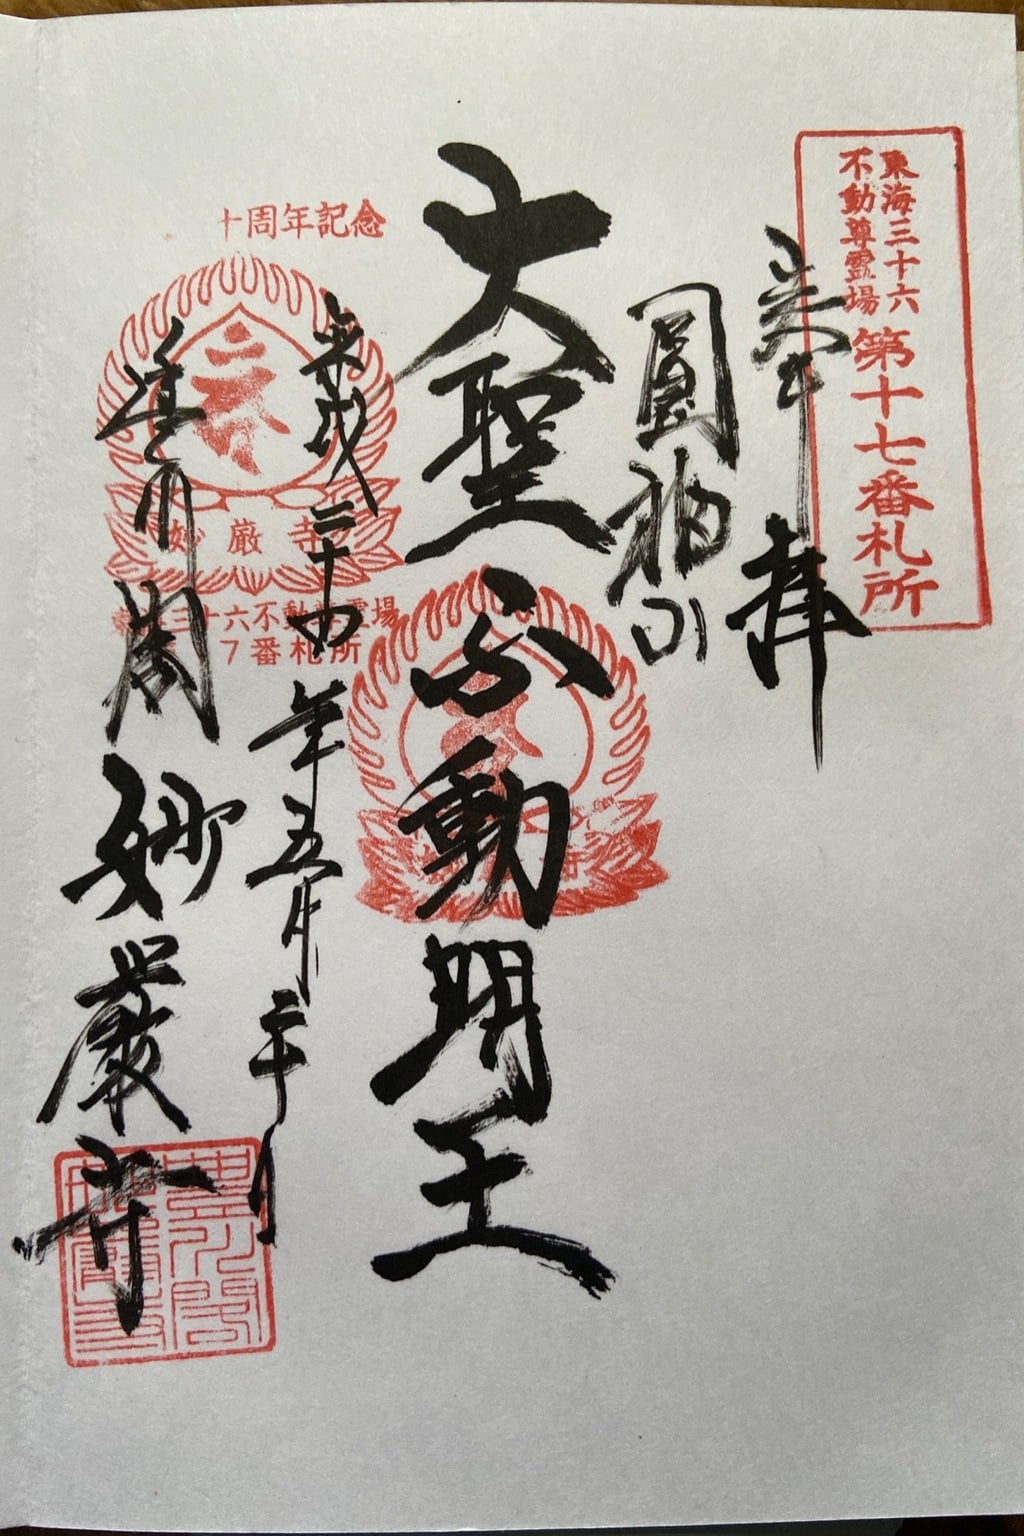 東海三十六
不動尊霊場
第十七番札所
奉拝
圓福山
大聖不動明王
平成二十四年五月二十日
豊川閣妙厳寺
十周年記念
妙厳寺
三十六不動尊霊場
7番札所